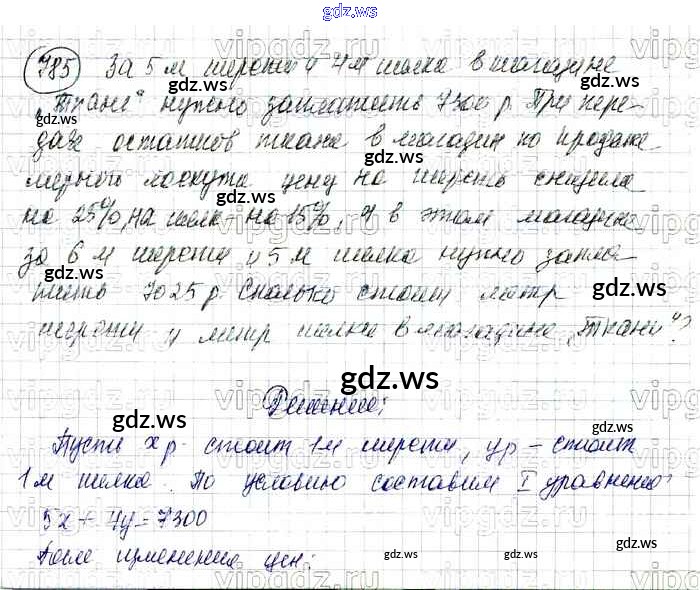 gdz.ws
785 За 5 м шерсти и 4 м шелка в магазине
„Ткани“ нужно заплатить 7300 р. При пере-
даче остатков ткани в магазин по продаже
мерного лоскута цену на шерсть снизили
на 25%, на шелк – на 15%, и в этом магазине
за 6 м шерсти и 5 м шелка нужно запла-
тить 7025 р. Сколько стоит метр
шерсти и метр шелка в магазине „Ткани“?
Решение:
Пусть x р. стоит 1 м шерсти, y р – стоит
1 м шелка. По условию составим I уравнение:
5x + 4y = 7300
После изменения цен: